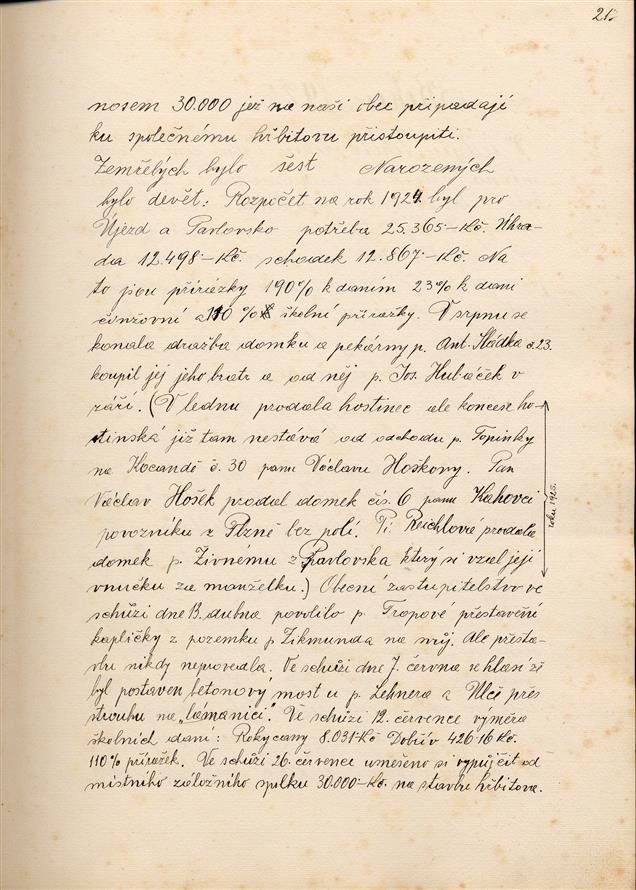 21
nosem 30.000 jež na naši obec připadají
ku společnému hřbitovu přistoupiti.
Zemřelých bylo šest Narozených
bylo devět: Rozpočet na rok 1924 byl pro
Újezd a Pavlovsko potřeba 25.365.-Kč. Úhra-
da 12.498-Kč. schodek 12.867.-Kč. Na
to jsou přirážky 190% k daním 23% k dani
činžovní a 110% školní přirážky. V srpnu se
konala dražba domku a pekárny p. Ant. Sládka č 23.
koupil jej jeho bratr a od něj p. Jos. Hubáček v
září. (V lednu prodala hostinec ale koncese ho-
stinská již tam nestává od odchodu p. Topinky
na Kocandě č. 30 panu Václavu Hoškovy. Pan
Václav Hošek prodal domek čís. 6 panu Kahovci
povozníku z Plzně bez polí. Pí. Reichlové prodala
domek p. Živnému z Pavlovska který si vzal její
vnučku za manželku.) Obecní zastupitelstvo ve
roku 1925.
schůzi dne 13. dubna povolilo p. Tropové přestavění
kapličky z pozemku p Zikmunda na svůj. Ale přesta-
vbu nikdy neprovedla. Ve schůzi dne 7. června se hlásí že
byl postaven betonový most u p. Lehnera a Ulč přes
strouhu na „lámanici". Ve schůzi 12. července výměra
školních daní: Rokycany 8.031-Kč Dobřív 426.16 Kč.
110% přirážek. Ve schůzi 26. července usnešeno si vypůjčit od
místního záložního spolku 30.000-Kč. na stavbu hřbitova.